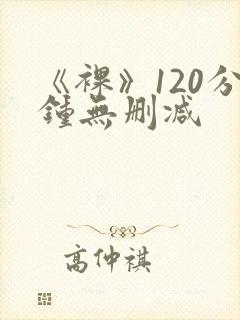 《裸》120分
鍾無删减
高仲祺